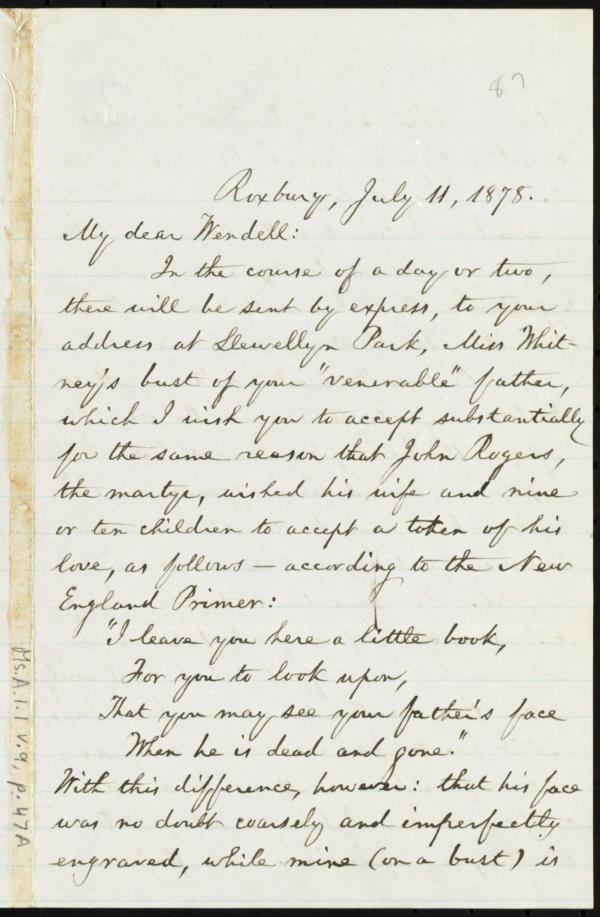 87
Roxbury, July 11, 1878.
My dear Wendell:
In the course of a day or two,
there will be sent by express, to your
address at Llewellyn Park, Miss Whit-
ney's bust of your "venerable" father,
which I wish you to accept substantially
for the same reason that John Rogers,
the martyr, wished his wife and nine
or ten children to accept a token of his
love, as follows — according to the New
England Primer:
"I leave you here a little book,
For you to look upon,
That you may see your father's face
When he is dead and gone."
With this difference, however: that his face
was no doubt coarsely and imperfectly
engraved, while mine (on a bust) is
Ms.A.1.1 v.9, p.47A